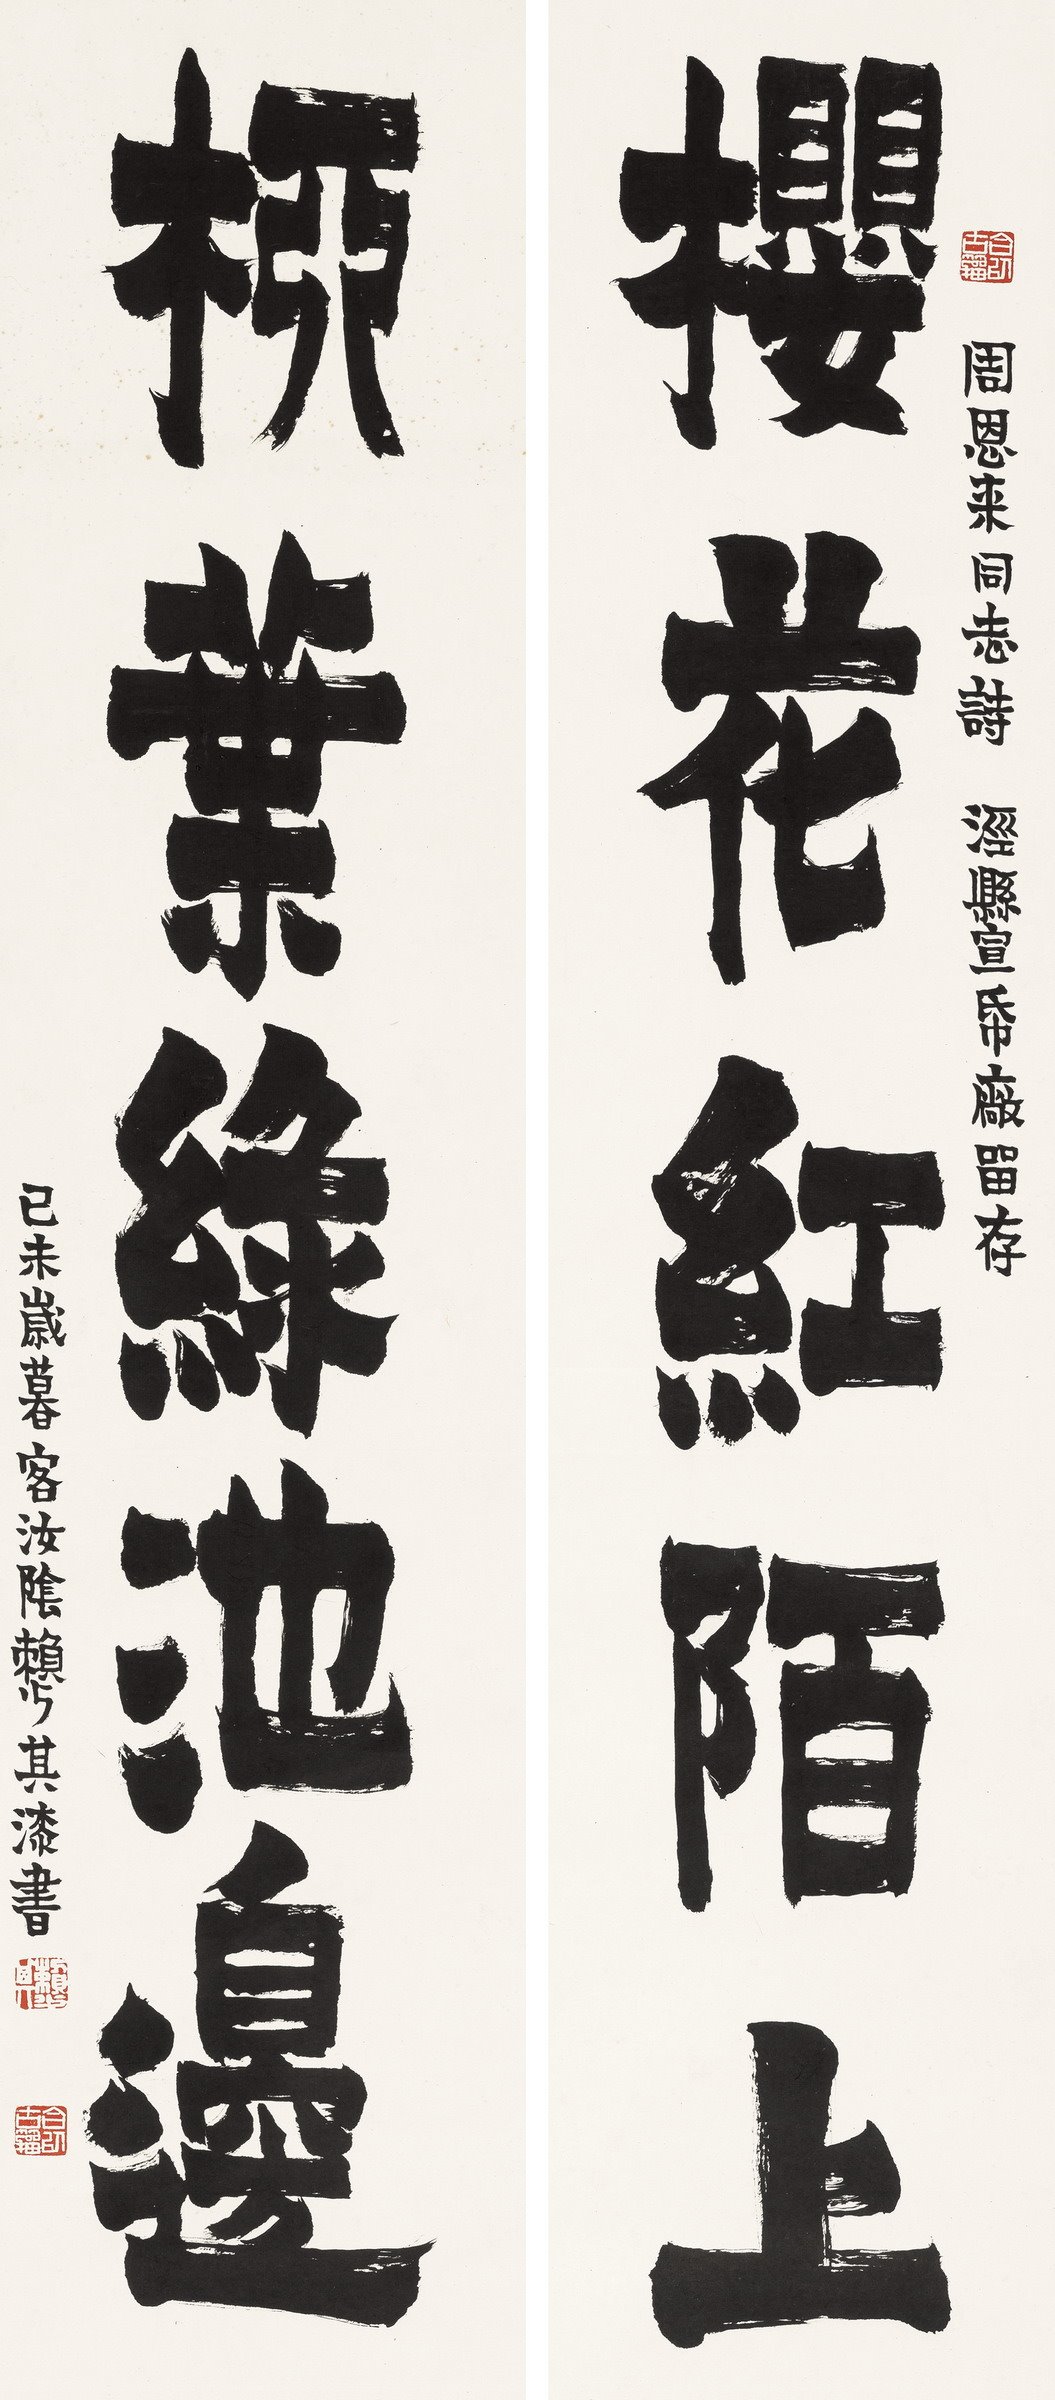 周恩来同志詩 涇縣宣帋廠留存
櫻花紅陌上
柳葉綠池邊
己未歲暮客汝陰賴少其漆書